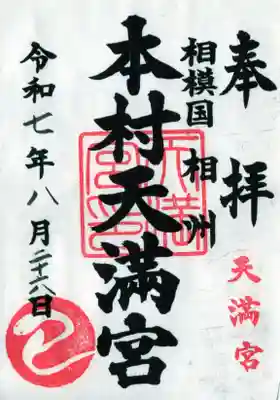 奉拝
天満宮
相模国 相州
本村天満宮
令和七年八月二十六日